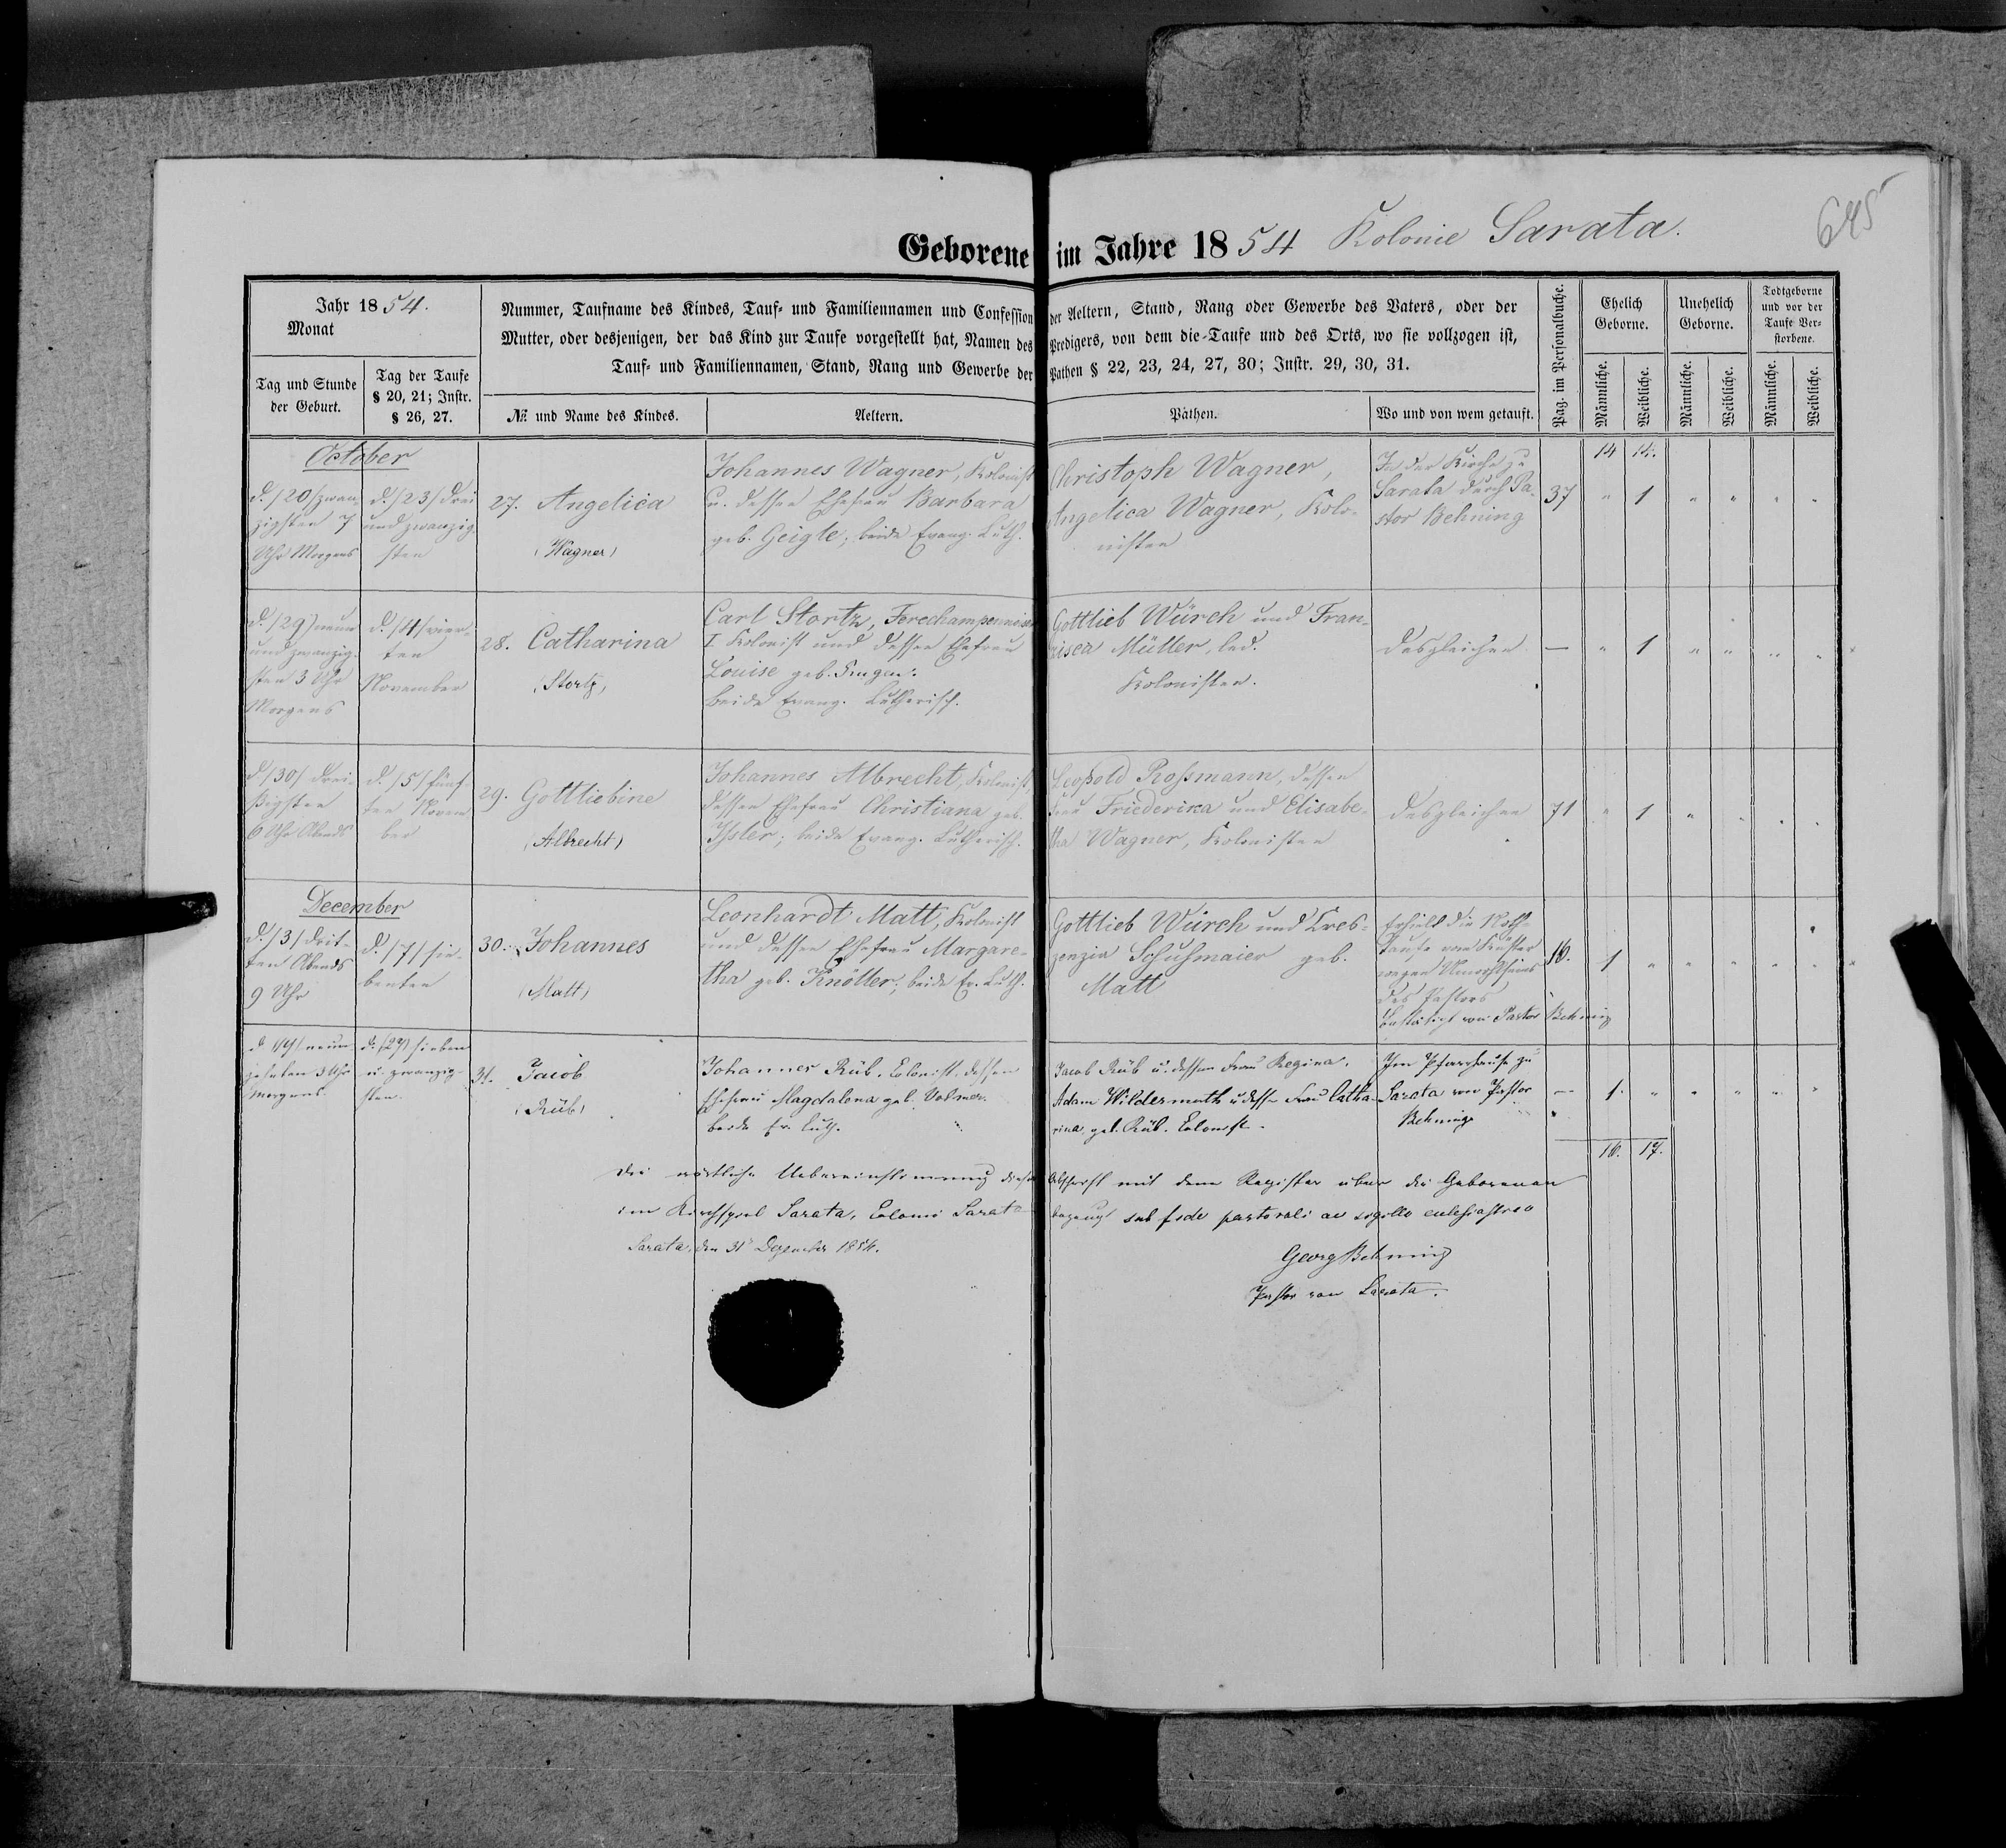 645
Geborene im Jahre 1854 Kolonie Sarata.
Jahr 1854.
Monat
Tag und Stunde
der Geburt.
Tag der Taufe
§ 20, 21; Instr.
§ 26, 27.
Nummer, Taufname des Kindes, Tauf- und Familiennamen und Confession der Aeltern, Stand, Rang oder Gewerbe des Vaters, oder der
Mutter, oder desjenigen, der das Kind zur Taufe vorgestellt hat, Namen des Predigers, von dem die Taufe und des Orts, wo sie vollzogen ist,
Tauf- und Familiennamen, Stand, Rang und Gewerbe der Pathen § 22, 23, 24, 27, 30; Instr. 29, 30, 31.
№ und Name des Kindes.
Aeltern.
Pathen.
Wo und von wem getauft.
Pag. im Personalbuche.
Ehelich
Geborne.
Unehelich
Geborne.
Todtgeborne
und vor der
Taufe Ver-
storbene.
Männliche.
Weibliche.
Männliche.
Weibliche.
Männliche.
Weibliche.
14 14.
October
d. /20/ zwan-
zigsten 7
Uhr Morgens
d. /23/ drei
und zwanzig-
sten
27. Angelica
(Wagner)
Johannes Wagner, Kolonist
u. dessen Ehefrau Barbara
geb. Geigle; beide Evang. Luth.
Christoph Wagner,
Angelica Wagner, Kolo-
nisten
In der Kirche zu
Sarata durch Pa-
stor Behning
37 " 1 " " " "
d. /29/ neun
und zwanzig-
sten 3 Uhr
Morgens
d. /4/ vier-
ten
November
28. Catharina
(Stortz)
Carl Stortz, Ferechampennoiser
I Kolonist und dessen Ehefrau
Louise geb.
beide Evang. Lutherisch.
Gottlieb Würch und Fran-
zisca Müller, led.
Kolonisten.
desgleichen
— " 1 " " " "
d. /30/ drei-
ßigsten
6 Uhr Abends
d. /5/ fünf-
ten Novem
ber
29. Gottliebine
(Albrecht)
Johannes Albrecht, Kolonist
dessen Ehefrau Christiana geb.
Ißler; beide Evang. Lutherisch.
Leopold Roßmann, dessen
Frau Friederika und Elisabe-
tha Wagner, Kolonisten
desgleichen
71 " 1 " " " "
December
d. /3/ drit-
ten Abends
9 Uhr
d. /7/ sie-
benten
30. Johannes
(Matt)
Leonhardt Matt, Kolonist
und dessen Ehefrau Margare-
tha geb. Knöller; beide Ev. Luth.
Gottlieb Würch und Cres-
zenzia Schuhmaier geb.
Matt
Erhielt die Noth-
taufe vom Küster
wegen Unwohlseins
des Pastors
bestätigt von Pastor Behning
16. 1 " " " " "
d. 19/ neun
zehnten 3 Uhr
Morgens.
d. (27) sieben
u. zwanzig-
sten.
31. Jacob
(Rüb)
Johannes Rüb, Colonist, dessen
Ehefrau Magdalena geb. Volmer.
beide Ev. Luth.
Jacob Rüb u. dessen Frau Regina.
Adam Wildermuth u dessen Frau Catha-
rina, geb. Rüb. Colonist.
Im Pfarrhause zu
Sarata von Pastor
Behning
— 1. " " " " "
16. 17.
Die wörtliche Uebereinstimmung dieser Abschrift mit dem Register über die Geborenen
im Kirchspiel Sarata, Colonie Sarata bezeugt sub fide pastorali ac sigillo ecclesiastico
Sarata, den 31 Dezember 1854.
Georg Behning
Pastor von Sarata.